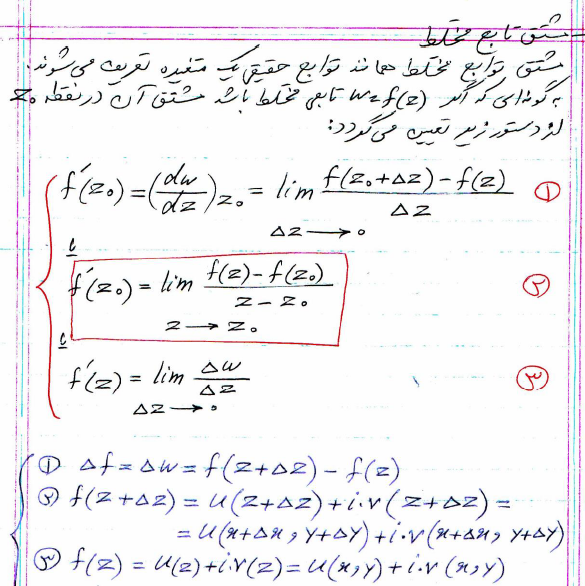 مشتق تابع مختلط
مشتق توابع مختلط همانند توابع حقیقی یک متغیره تعریف می‌شوند.
به گونه‌ای که اگر w=f(z) تابعی مختلط باشد مشتق آن در نقطه z₀
از دستور زیر تعیین می‌گردد:
f′(z₀) = (dw/dz)z₀ = lim (f(z₀+Δz) − f(z))/Δz ①
Δz → 0
یا
f′(z₀) = lim (f(z) − f(z₀))/(z − z₀) ②
z → z₀
یا
f′(z) = lim Δw/Δz ③
Δz → 0
① Δf = Δw = f(z+Δz) − f(z)
② f(z+Δz) = u(z+Δz) + i.v(z+Δz) =
= u(x+Δx, y+Δy) + i.v(x+Δx, y+Δy)
③ f(z) = u(z) + i.v(z) = u(x,y) + i.v(x,y)